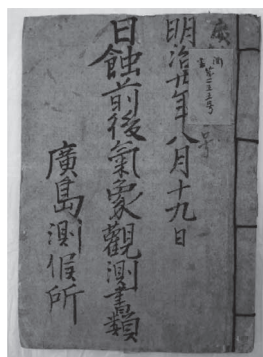 明治廿年八月十九日
日蝕前後氣象觀測書類
廣島測候所